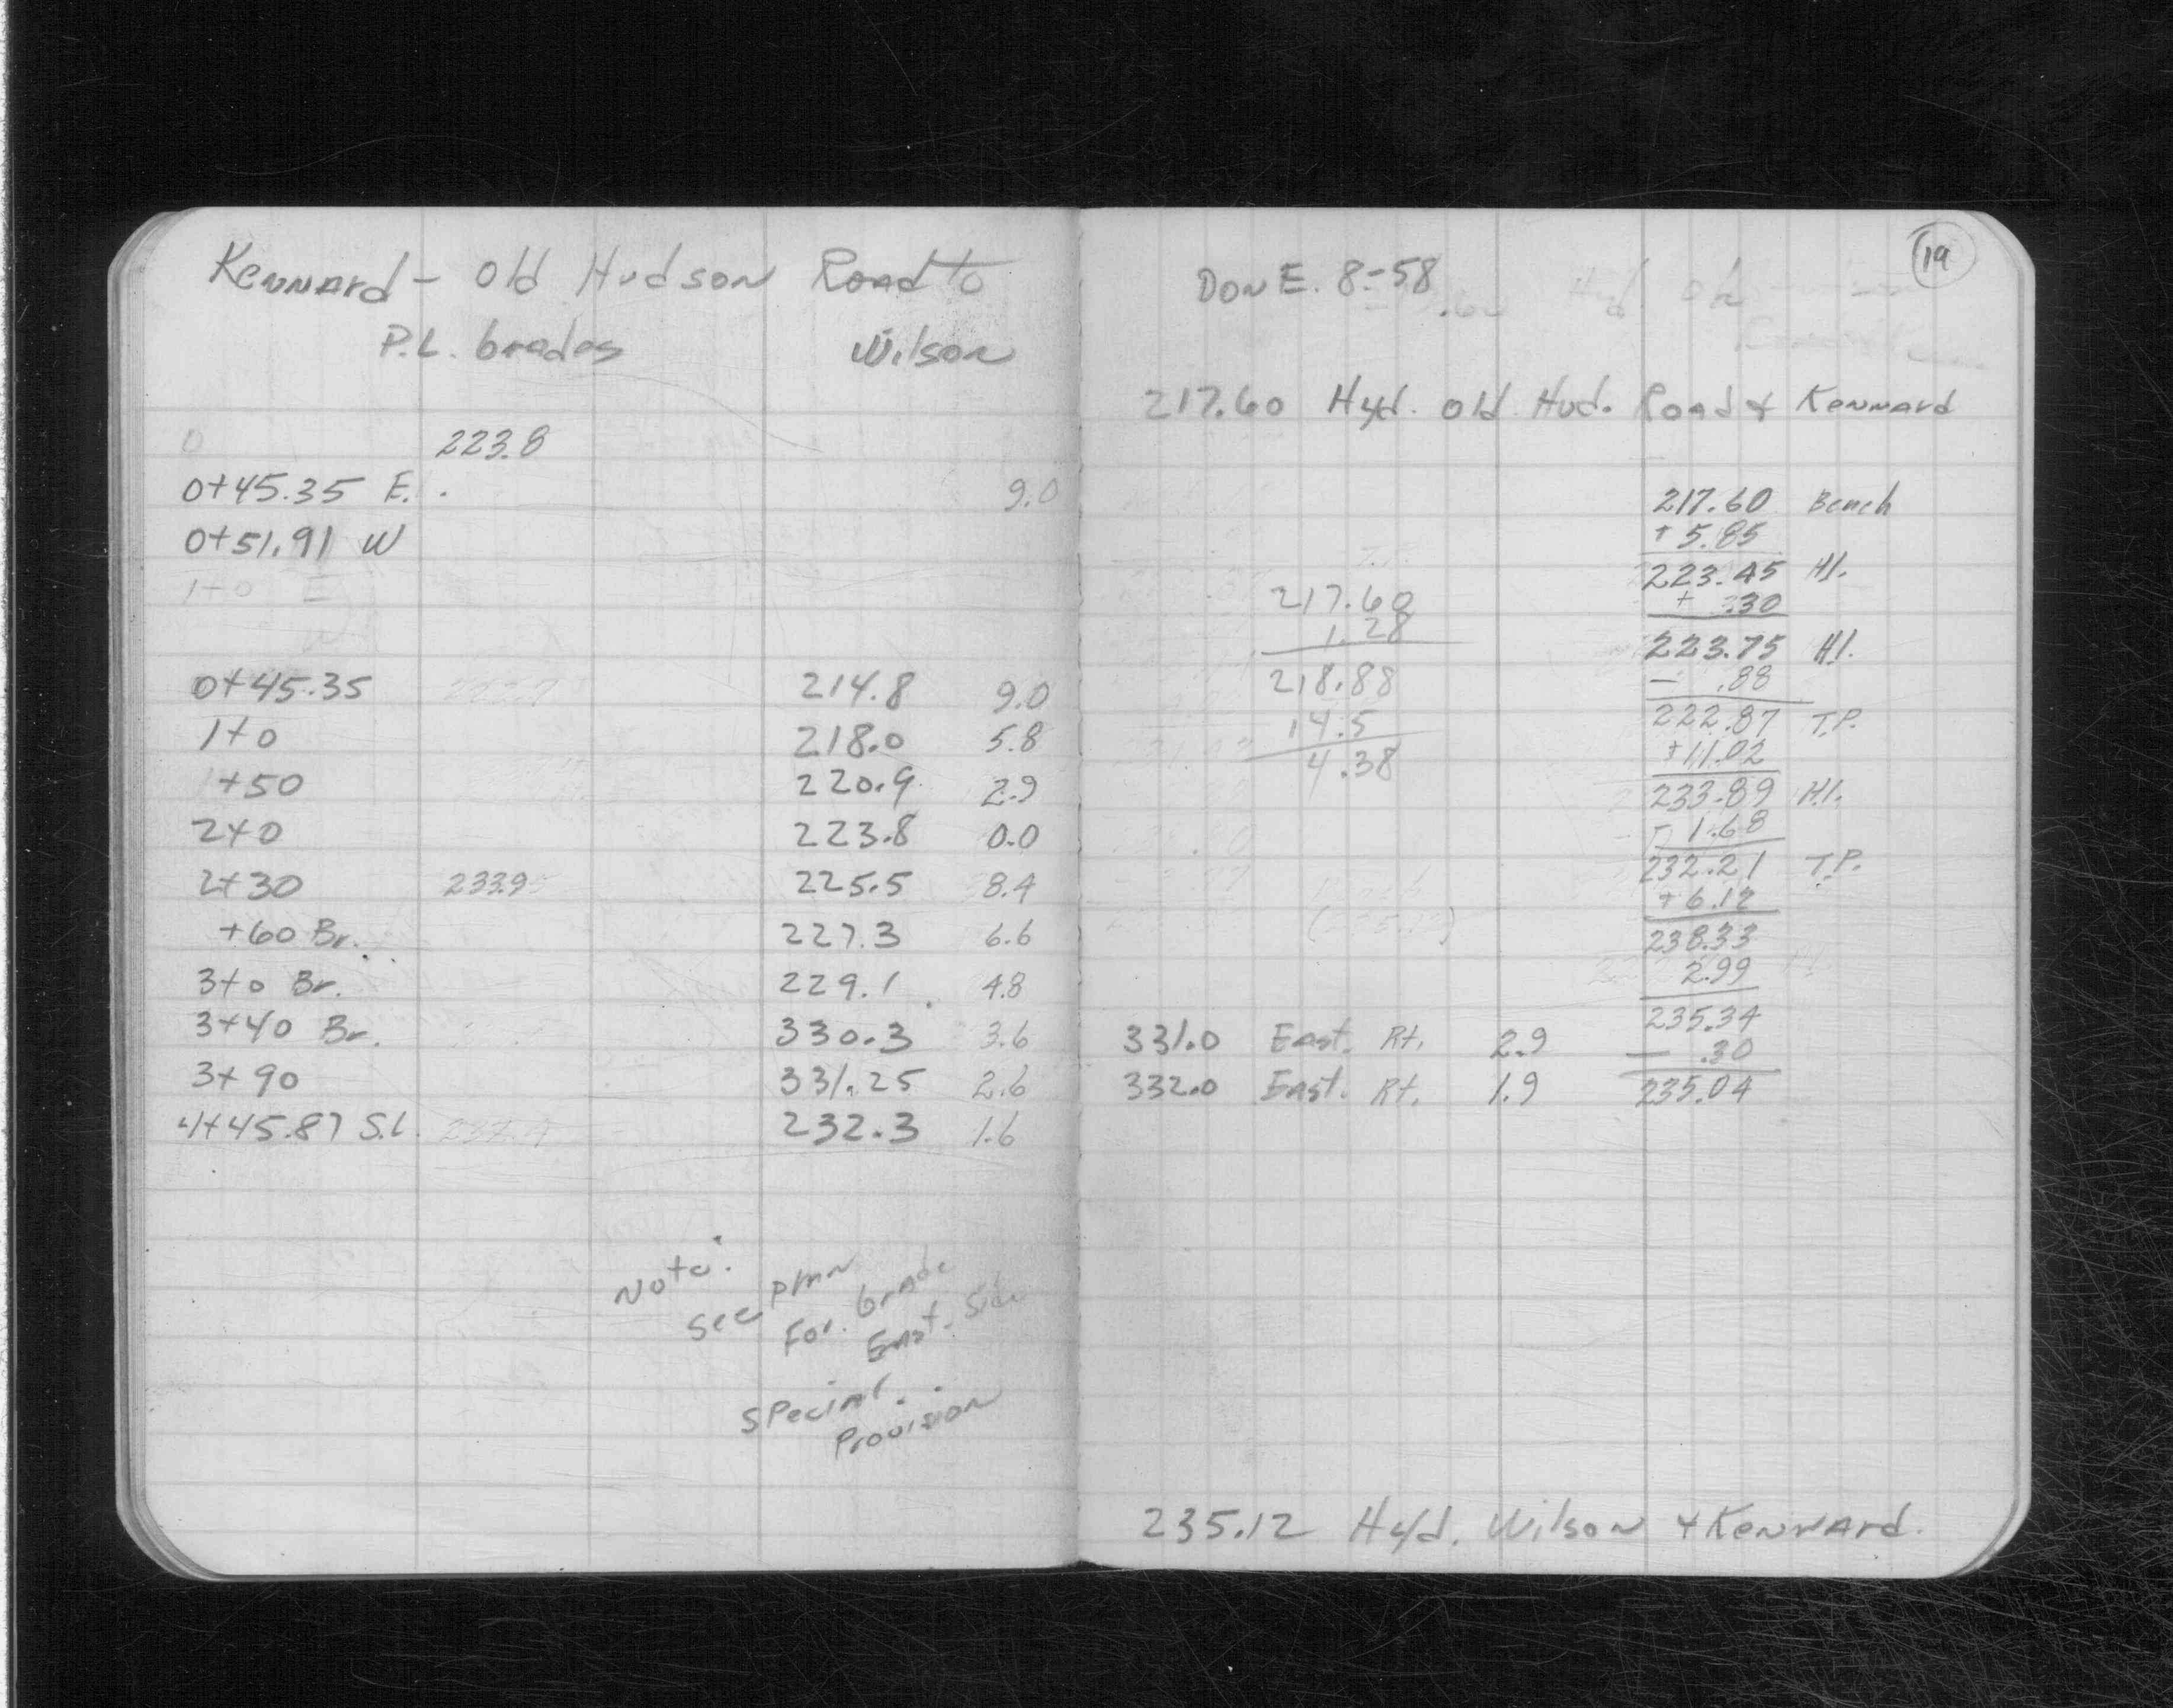 Kennard - Old Hudson Road to
P.L. Grades Wilson
0 223.8
0+45.35 E. . 9.0
0+51.91 W
1+0 E
W
0+45.35 214.8 9.0
1+0 218.0 5.8
1+50 220.9 2.9
2+0 223.8 0.0
2+30 233.9 225.5 8.4
+60 Br. 227.3 6.6
3+0 Br. 229.1 4.8
3+40 Br. 330.3 3.6
3+90 331.25 2.6
4+45.87 S.L. 232.3 1.6
Note:
See plan
For. Grade
East. Side
Special.
Provision
19
DonE. 8-58
217.60 Hyd. Old. Hud. Road & Kennard
217.60 Bench
+ 5.85
223.45 H.I.
+ .30
223.75 H.I.
- .88
222.87 T.P.
+11.02
233.89 H.I.
- 1.68
232.21 T.P.
+6.12
238.33
2.99
235.34
- .30
235.04
217.60
1.28
218.88
14.5
4.38
331.0 East. Rt. 2.9
332.0 East. Rt. 1.9
235.12 Hyd. Wilson & Kennard.